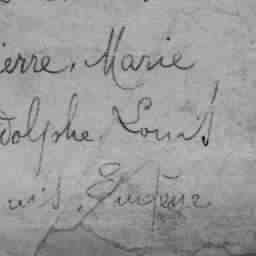 ierre, Marie
dolphe, Louis
uis, Eugène